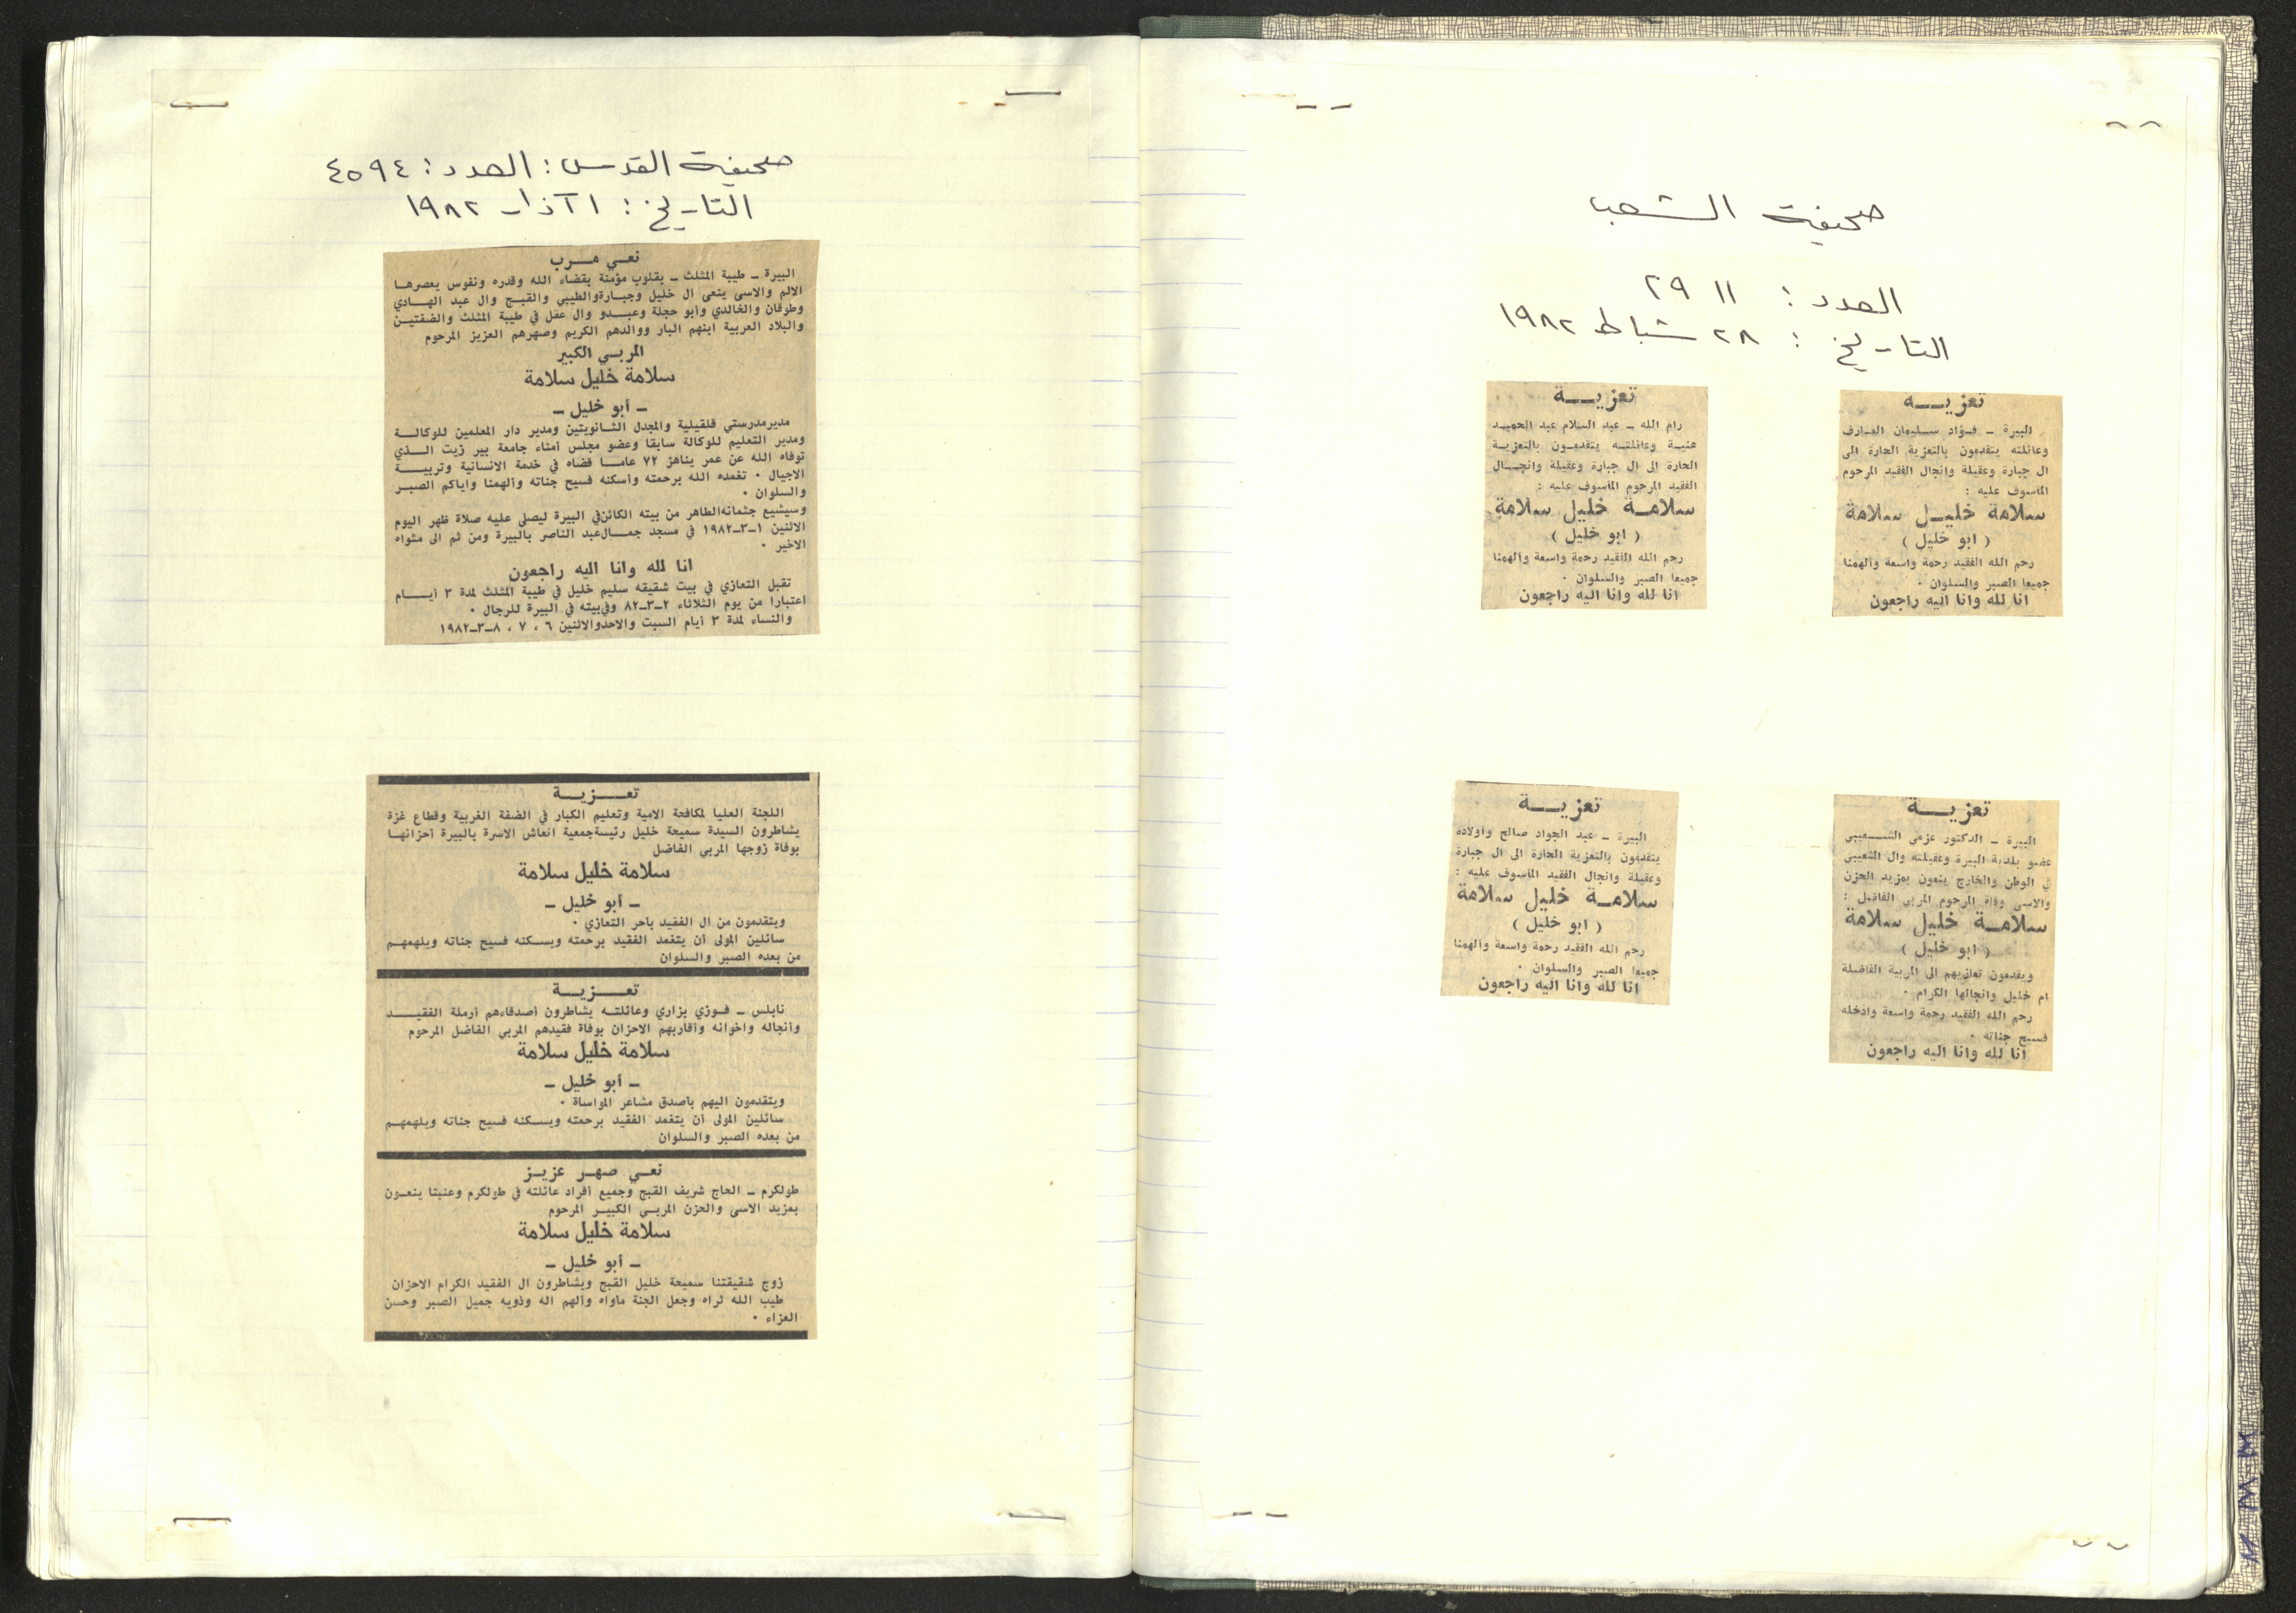 صحيفة الشعب
العدد : ٢٩١١
التاريخ : ٢٨ شباط ١٩٨٢
تعزيــه
البيرة – فؤاد سليمان العارف
وعائلته يتقدمون بالتعزية الحارة الى
ال جبارة وعقيلة وانجال الفقيد المرحوم
المأسوف عليه :
سلامة خليل سلامة
( ابو خليل )
رحم الله الفقيد رحمة واسعة والهمنا
جميعا الصبر والسلوان ٠
انا لله وانا اليه راجعون
تعزيــة
رام الله – عبد السلام عبد الحميد
هنية وعائلته يتقدمون بالتعزية
الحارة الى ال جبارة وعقيلة وانجال
الفقيد المرحوم المأسوف عليه :
سلامة خليل سلامة
( ابو خليل )
رحم الله الفقيد رحمة واسعة والهمنا
جميعا الصبر والسلوان ٠
انا لله وانا اليه راجعون
تعزيــة
البيرة – الدكتور عزمي الشعيبي
عضو بلدية البيرة وعقيلته وال الشعيبي
في الوطن والخارج ينعون بمزيد الحزن
والاسى وفاة المرحوم المربي الفاضل :
سلامة خليل سلامة
( ابو خليل )
ويقدمون تعازيهم الى المربية الفاضلة
ام خليل وانجالها الكرام ٠
رحم الله الفقيد رحمة واسعة وادخله
فسيح جناته ٠
انا لله وانا اليه راجعون
تعزيــة
البيرة – عبد الجواد صالح واولاده
يتقدمون بالتعزية الحارة الى ال جبارة
وعقيلة وانجال الفقيد المأسوف عليه :
سلامة خليل سلامة
( ابو خليل )
رحم الله الفقيد رحمة واسعة والهمنا
جميعا الصبر والسلوان ٠
انا لله وانا اليه راجعون
صحيفة القدس : العدد : ٤٥٩٤
التاريخ : ١ آذار ١٩٨٢
نعي مرب
البيرة – طيبة المثلث – بقلوب مؤمنة بقضاء الله وقدره ونفوس يعصرها
الالم والاسى ينعى ال خليل وجبارة والطيبي والقبج وال عبد الهادي
وطوقان والخالدي وأبو حجلة وعبدو وال عقل في طيبة المثلث والضفتين
والبلاد العربية ابنهم البار ووالدهم الكريم وصهرهم العزيز المرحوم
المربي الكبير
سلامة خليل سلامة
– أبو خليل –
مدير مدرستي قلقيلية والمجدل الثانويتين ومدير دار المعلمين للوكالة
ومدير التعليم للوكالة سابقا وعضو مجلس أمناء جامعة بير زيت الذي
توفاه الله عن عمر يناهز ٧٢ عاما قضاه في خدمة الانسانية وتربية
الاجيال ٠ تغمده الله برحمته وأسكنه فسيح جناته وألهمنا واياكم الصبر
والسلوان ٠
وسيشيع جثمانه الطاهر من بيته الكائن في البيرة ليصلى عليه صلاة ظهر اليوم
الاثنين ١–٣–١٩٨٢ في مسجد جمال عبد الناصر بالبيرة ومن ثم الى مثواه
الاخير ٠
انا لله وانا اليه راجعون
تقبل التعازي في بيت شقيقه سليم خليل في طيبة المثلث لمدة ٣ أيام
اعتبارا من يوم الثلاثاء ٢–٣–٨٢ وفي بيته في البيرة للرجال ٠
والنساء لمدة ٣ أيام السبت والاحد والاثنين ٦ ، ٧ ، ٨–٣–١٩٨٢
تعــزيــة
اللجنة العليا لمكافحة الامية وتعليم الكبار في الضفة الغربية وقطاع غزة
يشاطرون السيدة سميحة خليل رئيسة جمعية انعاش الاسرة بالبيرة أحزانها
بوفاة زوجها المربي الفاضل
سلامة خليل سلامة
– أبو خليل –
ويتقدمون من ال الفقيد بأحر التعازي ٠
سائلين المولى أن يتغمد الفقيد برحمته ويسكنه فسيح جناته ويلهمهم
من بعده الصبر والسلوان
تعــزيــة
نابلس – فوزي بزاري وعائلته يشاطرون أصدقاءهم أرملة الفقيد
وأنجاله واخوانه وأقاربهم الاحزان بوفاة فقيدهم المربي الفاضل المرحوم
سلامة خليل سلامة
– أبو خليل –
ويتقدمون اليهم بأصدق مشاعر المواساة ٠
سائلين المولى أن يتغمد الفقيد برحمته ويسكنه فسيح جناته ويلهمهم
من بعده الصبر والسلوان
نعي صهر عزيز
طولكرم – الحاج شريف القبج وجميع أفراد عائلته في طولكرم وعنبتا ينعون
بمزيد الاسى والحزن المربي الكبير المرحوم
سلامة خليل سلامة
– أبو خليل –
زوج شقيقتنا سميحة خليل القبج ويشاطرون ال الفقيد الكرام الاحزان
طيب الله ثراه وجعل الجنة مأواه وألهم اله وذويه جميل الصبر وحسن
العزاء ٠